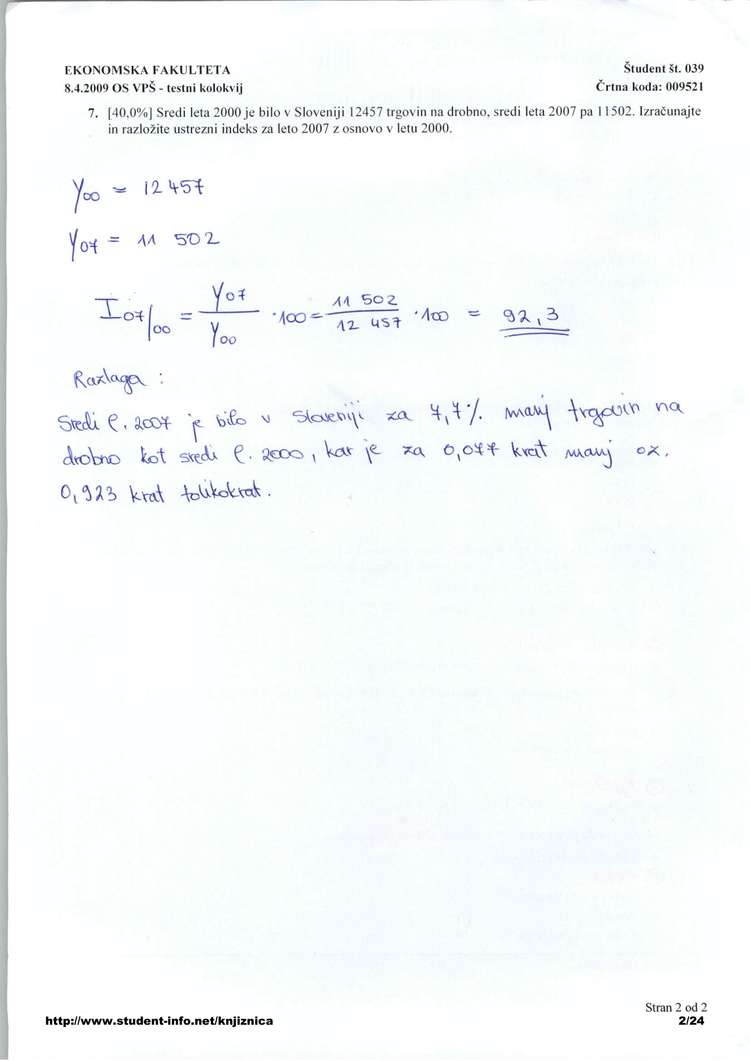 EKONOMSKA FAKULTETA
Študent št. 039
8.4.2009 OS VPŠ - testni kolokvij
Črtna koda: 009521
7. [40,0%] Sredi leta 2000 je bilo v Sloveniji 12457 trgovin na drobno, sredi leta 2007 pa 11502. Izračunajte
in razložite ustrezni indeks za leto 2007 z osnovo v letu 2000.
Y00 = 12 457
Y07 = 11 502
I07/00 = Y07/Y00 · 100 = 11 502/12 457 · 100 = 92,3
Razlaga :
Sredi l. 2007 je bilo v Sloveniji za 7,7% manj trgovin na
drobno kot sredi l. 2000, kar je za 0,077 krat manj oz.
0,923 krat tolikokrat.
Stran 2 od 2
http://www.student-info.net/knjiznica
2/24